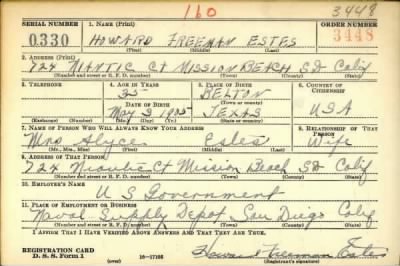 160 3448
SERIAL NUMBER 1. NAME (Print) ORDER NUMBER
0330 HOWARD FREEMAN ESTES 3448
(First) (Middle) (Last)
2. ADDRESS (Print)
724 NIANTIC Ct MISSION BEACH SD Calif
(Number and street or R. F. D. number) (Town) (County) (State)
3. TELEPHONE 4. AGE IN YEARS 5. PLACE OF BIRTH 6. COUNTRY OF CITIZENSHIP
35 BELTON
DATE OF BIRTH (Town or county)
May 3 1905 TEXAS USA
(Exchange) (Number) (Mo.) (Day) (Yr.) (State or country)
7. NAME OF PERSON WHO WILL ALWAYS KNOW YOUR ADDRESS 8. RELATIONSHIP OF THAT PERSON
Mrs Alyce Estes Wife
(Mr., Mrs., Miss) (First) (Middle) (Last)
9. ADDRESS OF THAT PERSON
724 Niantic Ct Mission Beach SD Calif
(Number and street or R. F. D. number) (Town) (County) (State)
10. EMPLOYER'S NAME
US Government
11. PLACE OF EMPLOYMENT OR BUSINESS
Naval Supply Depot San Diego Calif
(Number and street or R. F. D. number) (Town) (County) (State)
I AFFIRM THAT I HAVE VERIFIED ABOVE ANSWERS AND THAT THEY ARE TRUE.
REGISTRATION CARD
D. S. S. Form 1 (over) 16-17105 Howard Freeman Estes
(Registrant's signature)